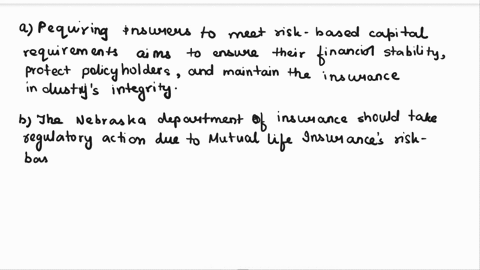 a) Requiring insurers to meet risk-based capital
requirements aims to ensure their financial stability,
protect policyholders, and maintain the insurance
industry's integrity.
b) The Nebraska department of insurance should take
regulatory action due to Mutual Life Insurance's risk-
bas